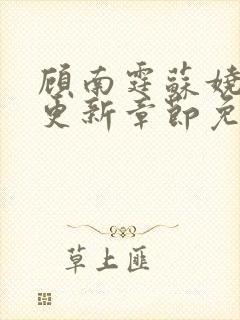 顾南霆苏娆
更新章节免
草上匪